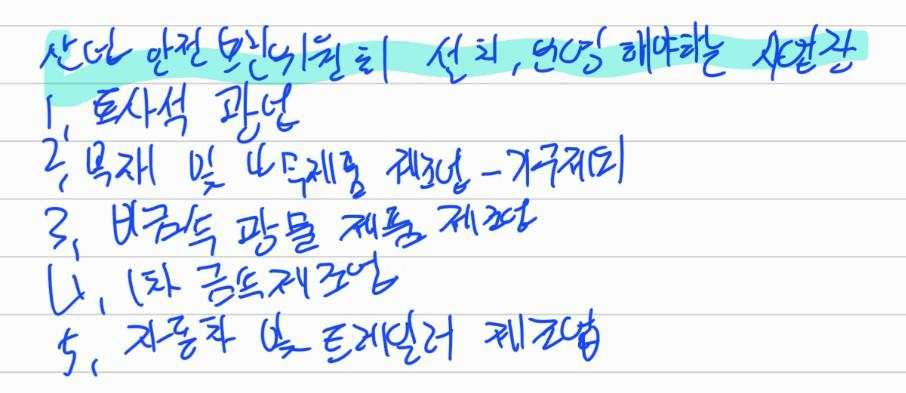 산업 안전 보건위원회 설치, 운영해야하는 사업장
1, 토사석 광업
2, 목재 및 나무제품 제조업 - 가구제외
3, 비금속 광물 제품 제조업
4, 1차 금속제조업
5, 자동차 및 트레일러 제조업